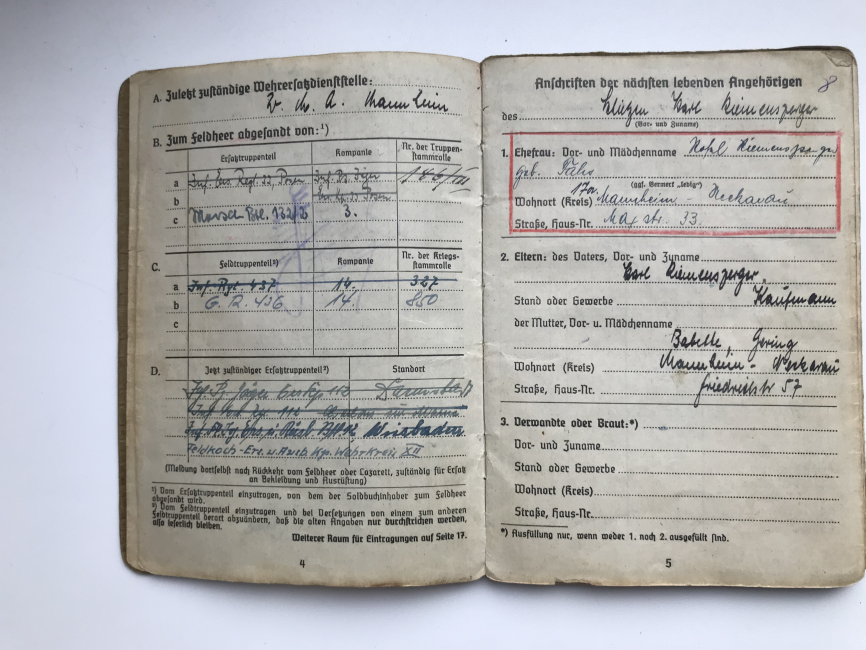 A. Zuletzt zuständige Wehrersatzdienststelle:
Mannheim
B. Zum Feldheer abgesandt von:¹)
Ersatztruppenteil
Kompanie
Nr. der Truppenstammrolle
a
b
c
3.
C.
Feldtruppenteil²)
Kompanie
Nr. der Kriegsstammrolle
a Inf. Rgt. 437 14. 327
b G. R. 436 14. 850
c
D.
Jetzt zuständiger Ersatztruppenteil²)
Standort
Wiesbaden
Feldkoch-Ers. u. Ausb. Kp. Wehrkreis XII
(Meldung dortselbst nach Rückkehr vom Feldheer oder Lazarett, zuständig für Ersatz
an Bekleidung und Ausrüstung)
¹) Vom Ersatztruppenteil einzutragen, von dem der Soldbuchinhaber zum Feldheer
abgesandt wird.
²) Vom Feldtruppenteil einzutragen und bei Versetzungen von einem zum anderen
Feldtruppenteil derart abzuändern, daß die alten Angaben nur durchstrichen werden,
also leserlich bleiben.
Weiterer Raum für Eintragungen auf Seite 17.
4
Anschriften der nächsten lebenden Angehörigen
8
des Karl Riemensperger
(Vor- und Zuname)
1. Ehefrau: Vor- und Mädchenname Riemensperger
geb.
(ggf. Vermerk „ledig")
17a
Wohnort (Kreis) Mannheim - Neckarau
Straße, Haus-Nr. Max str. 33
2. Eltern: des Vaters, Vor- und Zuname
Karl Riemensperger
Stand oder Gewerbe Kaufmann
der Mutter, Vor- u. Mädchenname
Babette, Gering
Wohnort (Kreis) Mannheim - Neckarau
Straße, Haus-Nr. Friedrichstr 57
3. Verwandte oder Braut:*)
Vor- und Zuname
Stand oder Gewerbe
Wohnort (Kreis)
Straße, Haus-Nr.
*) Ausfüllung nur, wenn weder 1. noch 2. ausgefüllt sind.
5